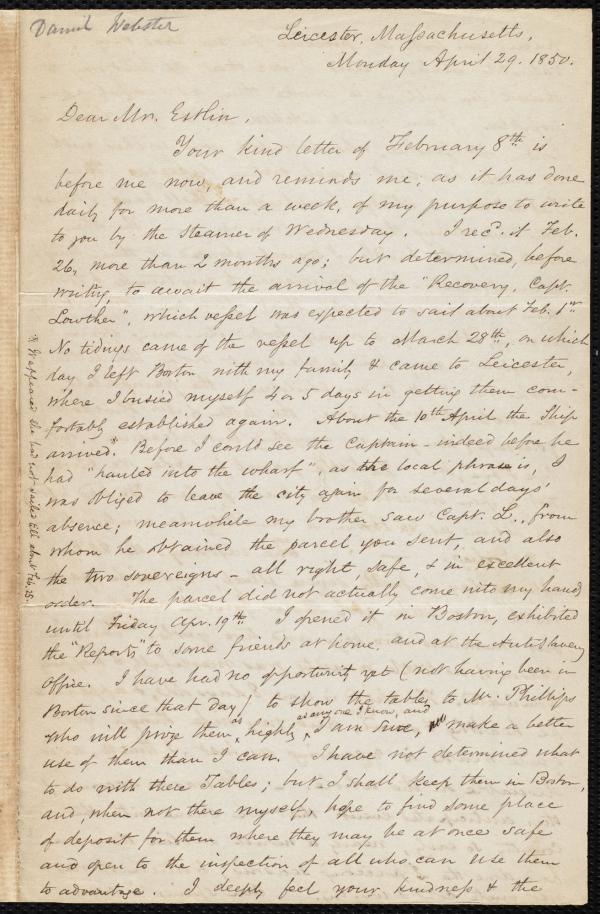 Daniel Webster
Leicester, Massachusetts,
Monday April 29. 1850.
Dear Mr. Estlin,
Your kind letter of February 8th is
before me now, and reminds me, as it has done
daily for more than a week, of my purpose to write
to you by the Steamer of Wednesday. I recd. it Feb.
26, more than 2 months ago; but determined, before
writing, to await the arrival of the "Recovery, Capt.
Lowther", which vessel was expected to sail about Feb. 1st.
No tidings came of the vessel up to March 28th, on which
day I left Boston with my family & came to Leicester,
where I busied myself 4 or 5 days in getting them com-
fortably established again. About the 10th April the Ship
arrived*. Before I could see the Captain - indeed before he
had "hauled into the wharf", as the local phrase is, I
was obliged to leave the city again for several days'
absence; meanwhile my brother saw Capt. L., from
whom he obtained the parcel you sent, and also
the two sovereigns - all right safe, & in excellent
order. The parcel did not actually come into my hand
until Friday Apr. 19th. I opened it in Boston, exhibited
the "Reports" to some friends at home, and at the AntiSlavery
Office. I have had no opportunity yet (not having been in
Boston since that day) to show the tables to Mr. Phillips
who will prize them as highly as any one I know, and, I am sure, will make a better
use of them than I can. I have not determined what
to do with these Tables; but I shall keep them in Boston,
and, when not there myself, hope to find some place
of deposit for them where they may be at once safe
and open to the inspection of all who can use them
to advantage. I deeply feel your kindness & the
* It appeared she had not sailed till about Feb. 25.